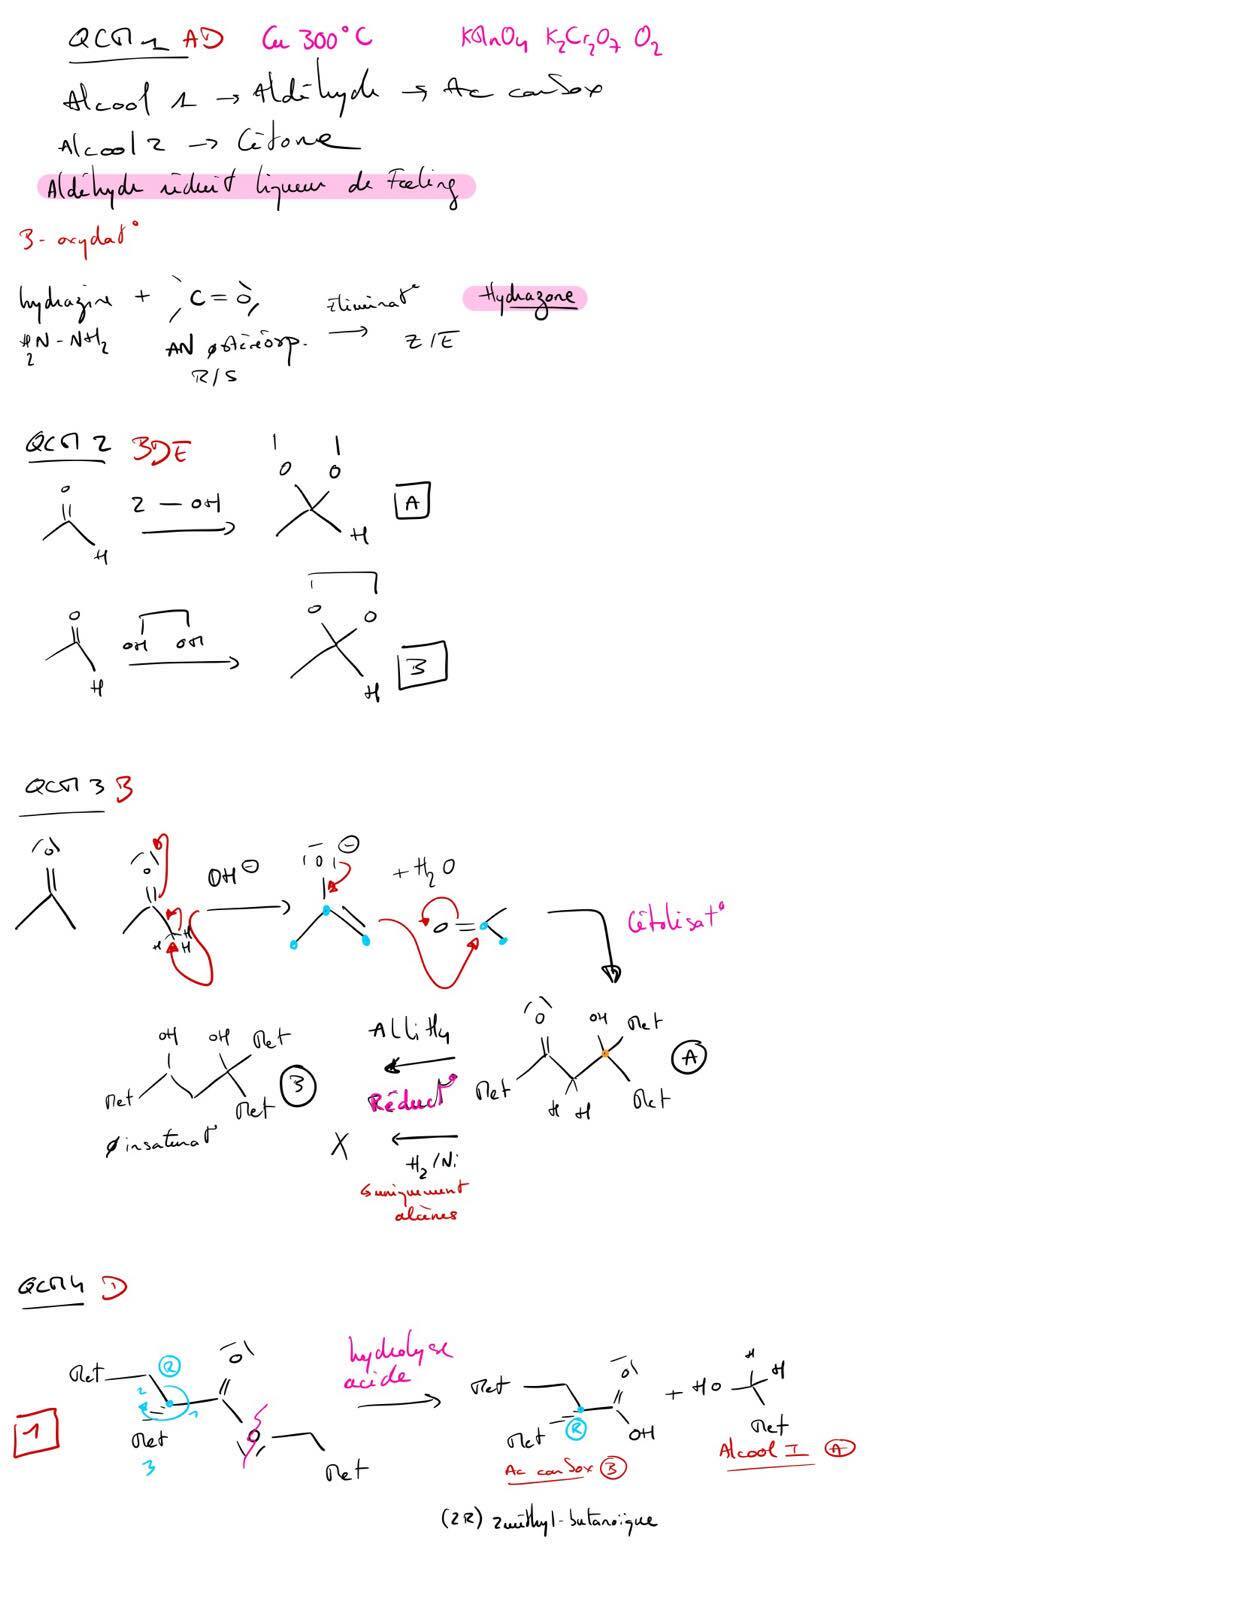 QCM 1 AD Cu 300°C KMnO4 K2Cr2O7 O2
Alcool 1 → Aldéhyde → Ac carbox
Alcool 2 → Cétone
Aldéhyde réduit liqueur de Feeling
B- oxydat°
hydrazine + C=O Éliminat° → Hydrazone
H2N-NH2 AN ∅stéréosp. Z/E
R/S
QCM 2 BDE
O 2 —OH → O O H A
H
O OH OH → O O H B
H
QCM 3 B
O O H H H OH⊖ → |O| ⊖ + H2O O= Cétolisat°
OH OH Met AlLiH4 O OH Met
Met Met B Réduct° Met H H Met A
∅insaturat° X H2/Ni
↳uniquement
alcènes
QCM 4 D
1 Met R O hydrolyse acide → Met O + HO H H
2 1 Met O Met R OH Met
3 Met Ac carbox B Alcool I A
(2R) 2méthyl-butanoïque